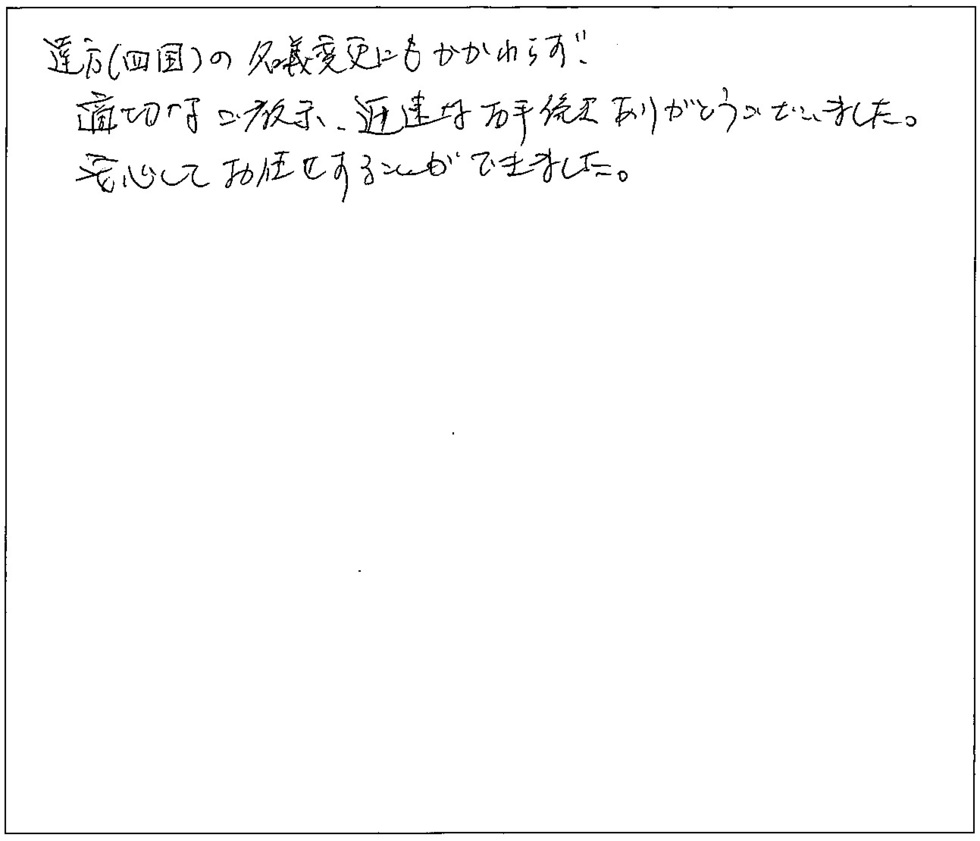 遠方(四国)の名義変更にもかかわらず、
適切なご教示、迅速なお手続きありがとうございました。
安心してお任せすることができました。